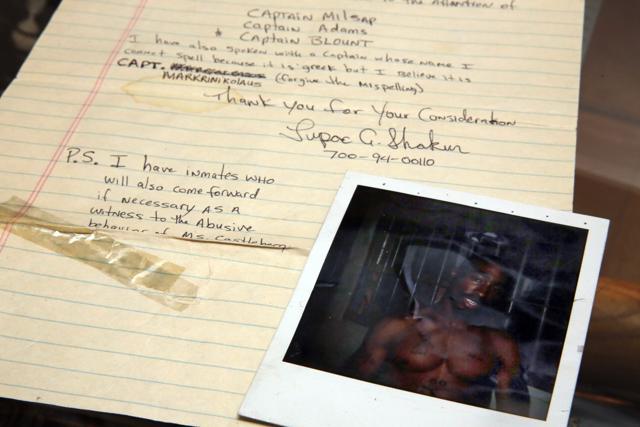 to the attention of
CAPTAIN MILSAP
Captain Adams
* CAPTAIN BLOUNT
I have also spoken with a Captain whose name I
cannot spell because it is greek but I believe it is
CAPT.
MARKRINIKOLAUS (forgive the mispelling)
Thank You for Your Consideration
Tupac A. Shakur
700-94-00110
P.S. I have inmates who
will also come forward
if necessary AS A
witness to the Abusive
behavior of Ms. Castleberg